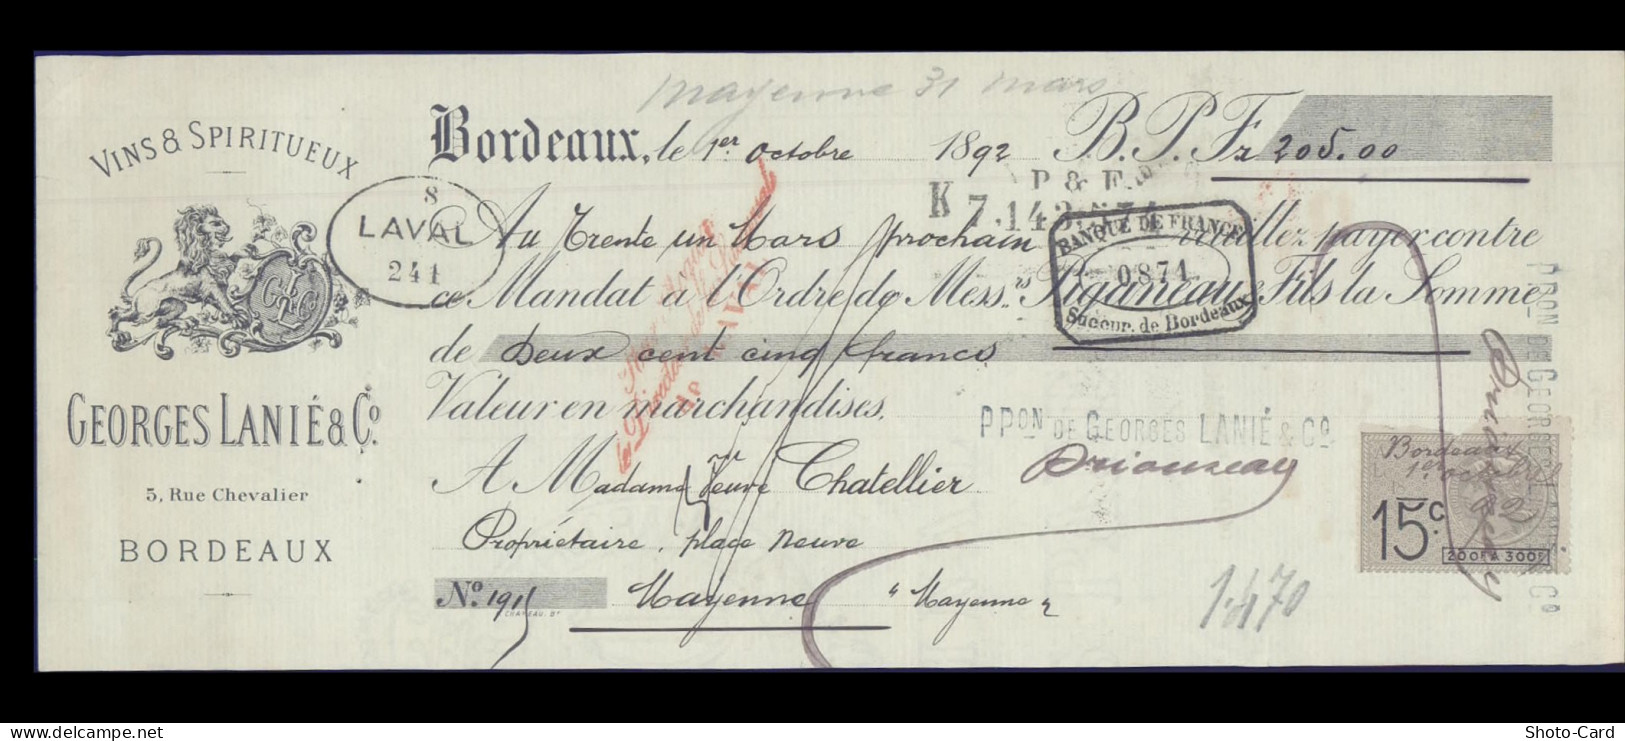 Mayenne 31 mars
VINS & SPIRITUEUX
GEORGES LANIÉ & Co.
5, Rue Chevalier
BORDEAUX
Bordeaux, le 1er Octobre 1892 B.P.Fr 205.00
8
LAVAL
241
P. & F.
K 7.143.
BANQUE DE FRANCE
0871
Succur. de Bordeaux
Au Trente un Mars prochain veuillez payer contre
ce Mandat à l'Ordre de Mess.rs Piganeau & Fils la Somme
de Deux cent cinq francs
Valeur en marchandises.
PPON DE GEORGES LANIÉ & Co
A Madame Veuve Chatellier
Propriétaire, place neuve
No. 1911 Mayenne "Mayenne"
CHAPEAU. Bx
Bordeaux
1er octobre
92
15c.
200F A 300F
1.470
PPON DE GEORGES LANIÉ & Co
Shoto-Card